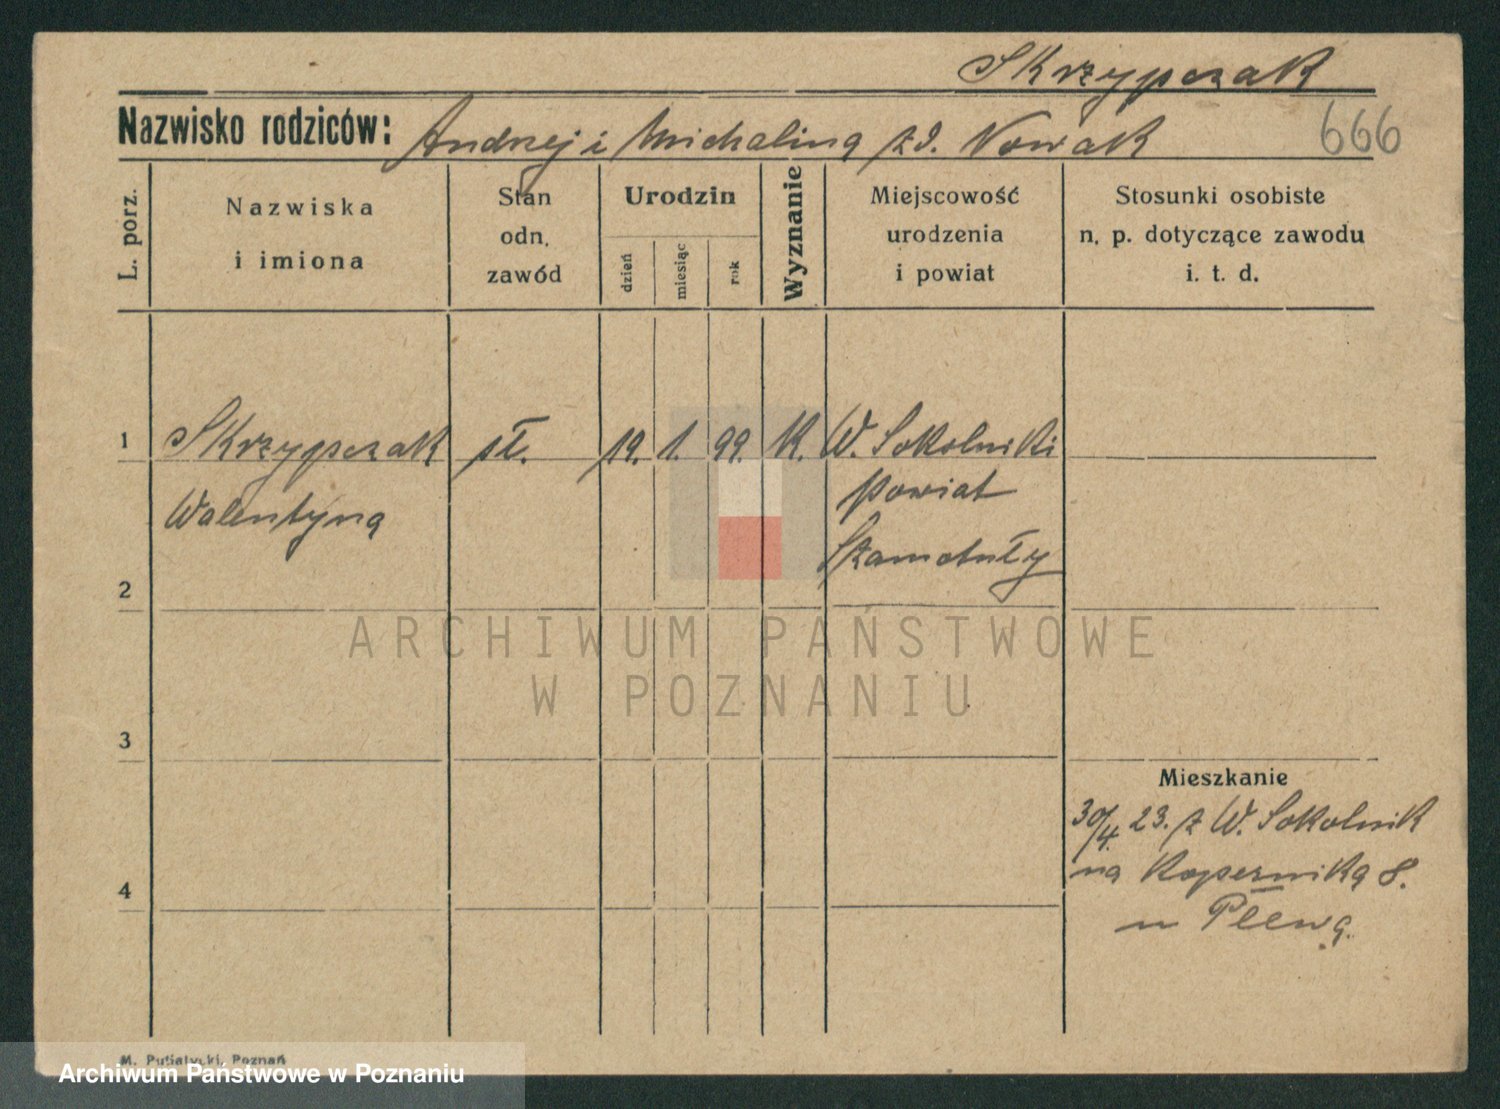 Skrzypczak
Nazwisko rodziców: Andrzej i Michalina z d. Nowak 666
L. porz.
Nazwiska
i imiona
Stan
odn.
zawód
Urodzin
dzień
miesiąc
rok
Wyznanie
Miejscowość
urodzenia
i powiat
Stosunki osobiste
n. p. dotyczące zawodu
i. t. d.
1 Skrzypczak sł. 19. 1. 99. K. W. Sokolniki
Walentyna powiat
Szamotuły
2
ARCHIWUM PAŃSTWOWE
W POZNANIU
3
Mieszkanie
30/4. 23. z W. Sokolnik
na Kopernika 8.
4
u
M. Putiatycki, Poznań
Archiwum Państwowe w Poznaniu